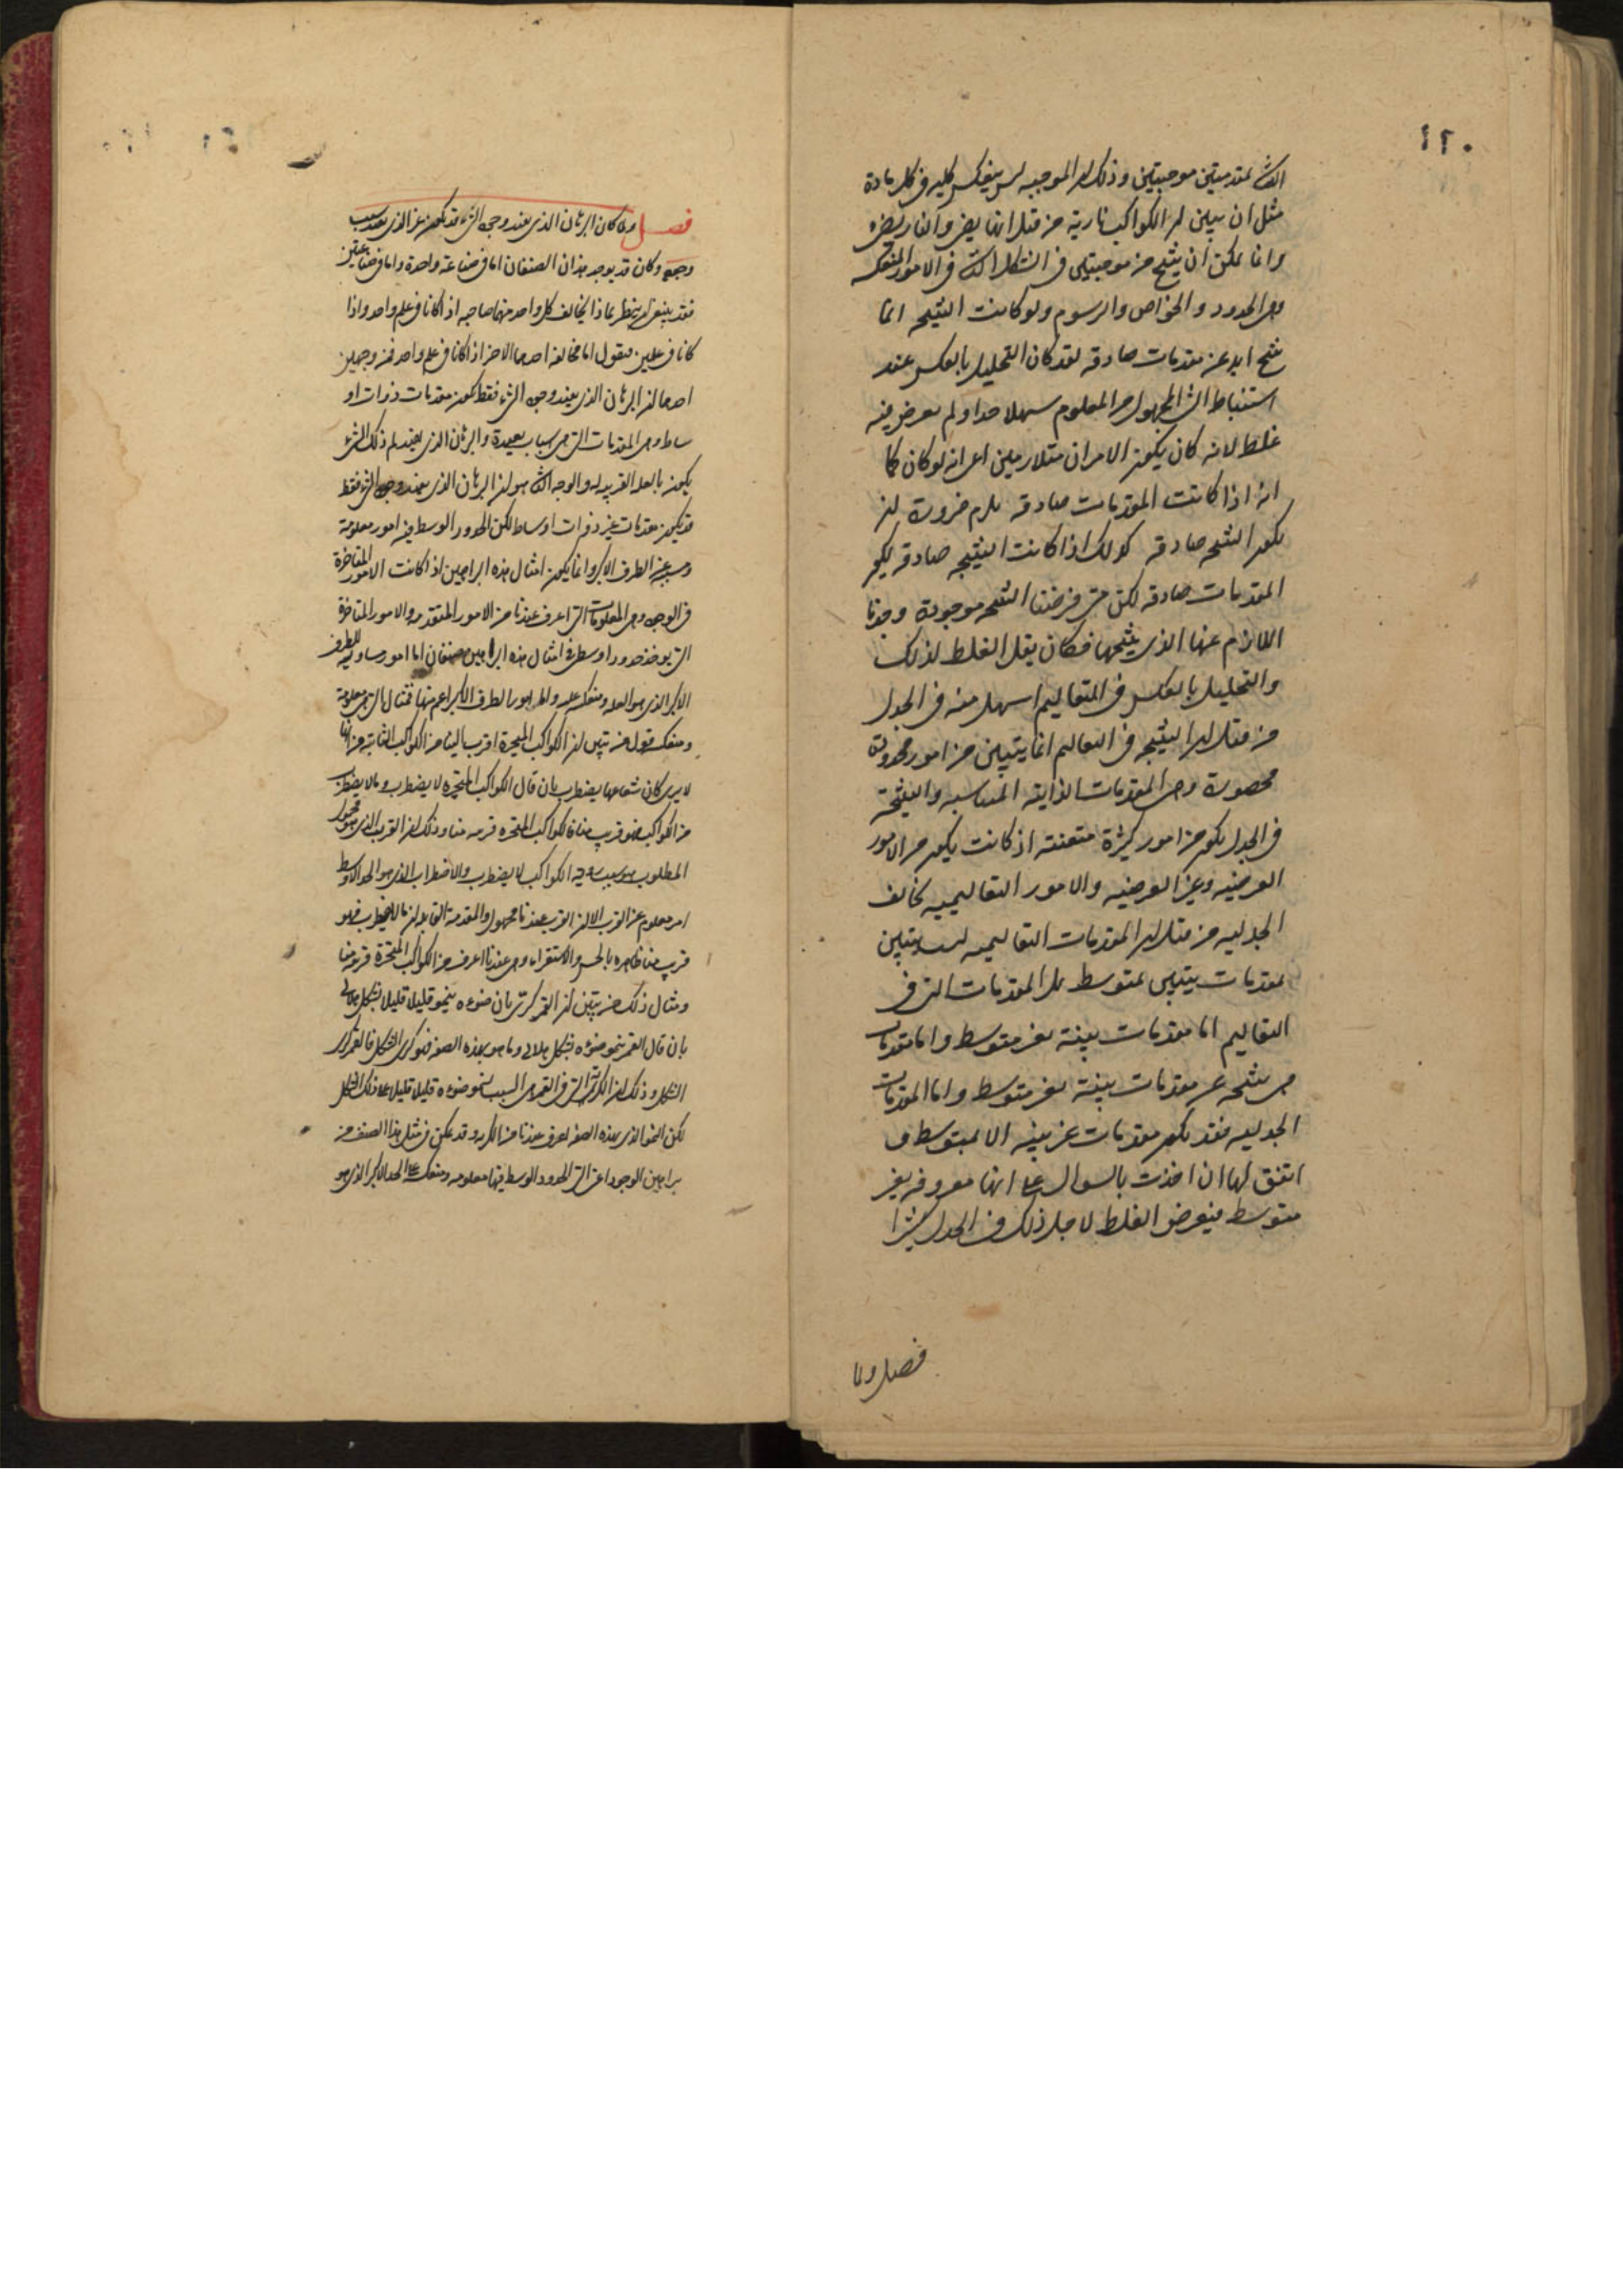 ١٢٠
الثانى بمقدمتين موجبتين وذلك ان الموجبه ليس ينعكس كليه فى كل مادة
مثل ان يبين ان الكواكب نارية من قبل انها يضى والنار يضى
وانما يمكن ان ينتج من موجبتين فى الشكل الثانى فى الامور المنعكسه
وهى الحدود والخواص والرسوم ولو كانت النتيجه انما
ينتج ابدا عن مقدمات صادقه لقد كان التحليل بالعكس عند
استنباط الشى المجهول من المعلوم سهلا جدا ولم يعرض فيه
غلط لانه كان يكون الامران متلازمين اعنى انه لو كان كما
انه اذا كانت المقدمات صادقه يلزم ضرورة ان
يكون النتيجه صادقه كذلك اذا كانت النتيجه صادقه يكون
المقدمات صادقه لكن متى فرضنا النتيجه موجودة وجدنا
اللازم عنها الذى ينتجها فكان يقل الغلط لذلك
والتحليل بالعكس فى التعاليم اسهل منه فى الجدل
من قبل ان النتيجه فى التعاليم انما يتبين من امور محدودة
محصورة وهى المقدمات الذاتية المناسبه والنتيجة
فى الجدل يكون من امور كثيرة متفننه اذ كانت يكون من الامور
العرضيه وغير العرضيه والامور التعاليميه يخالف
الجدليه من قبل ان المقدمات التعاليميه ليست يتبين
بمقدمات يتبين بمتوسط بل المقدمات التى فى
التعاليم اما مقدمات بينة بغير متوسط واما مقدمات
هى نتيجه عن مقدمات بينة بغير متوسط واما المقدمات
الجدليه فقد يكون مقدمات غير بينه الا بمتوسط و
اتفق لها ان اخذت بالسوال على انها معروفه بغير
متوسط فيعرض الغلط لاجل ذلك فى الجدل كثيرا
فصل ولما
فصل ولما كان البرهان الذى يفيد وجود الشى قد يكون غير الذى يفيد سبب
وجوده وكان قد يوجد هذان الصنفان اما فى صناعة واحدة واما فى صناعتين
فقد ينبغى ان ينظر بماذا يخالف كل واحد منهما صاحبه اذا كانا فى علم واحد واذا
كانا فى علمين فنقول اما مخالفة احدهما الاخر اذا كانا فى علم واحد فمن وجهين
احدهما ان البرهان الذى يفيد وجود الشى فقط يكون مقدمات ذوات او
ساط وهى المقدمات التى هى اسباب بعيدة والبرهان الذى يفيد لم ذلك الشى
يكون بالعلة القريبه له والوجه الثانى هو ان البرهان الذى يفيد وجود الشى فقط
قد يكون مقدمات غير ذوات اوساط لكن الحدود الوسط فيه امور معلومة
ومسببة عن الطرف الاكبر وانما يكون امثال هذه البراهين اذا كانت الامور المتاخرة
فى الوجود وهى المعلومات التى اعرف عندنا من الامور المتقدمه والامور المتاخرة
التى يوخذ حدودا وسطى فى امثال هذه البراهين صنفان اما امور مساويه للطرف
الاكبر الذى هو العلة ومنعكسه عليه واما امور الطرف الاكبر اعم منها فمثال التى هى معلومة
ومنعكسه قول من يتبين ان الكواكب المتحيرة اقرب الينا من الكواكب الثابتة من انها
لا يرى كان شعاعها يضطرب بان قال الكواكب المتحيره لا يضطرب وما لا يضطرب
من الكواكب فهو قريب منا فالكواكب المتحيره قريبه منا وذلك ان القرب الذى هو محمول
المطلوب هو سبب رؤية الكواكب لا يضطرب والاضطراب الذى هو الحد الاوسط
امر معلوم عن القرب الا ان القرب عندنا مجهول والمقدمة القايله ان ما لا يضطرب فهو
قريب منا ظاهره بالحس والاستقراء وهى عندنا اعرف من الكواكب المتحيرة قريبة منا
ومثال ذلك من يتبين ان القمر كرى بان ضوءه ينمو قليلا قليلا بشكل هلالى
بان قال القمر ينمو ضوءه بشكل هلالى وما هو بهذه الصفه فهو كرى الشكل فالقمر كرى
الشكل وذلك ان الكرية التى فى القمر هى السبب لنمو ضوءه قليلا قليلا على ذلك الشكل
لكن النمو الذى بهذه الصفه اعرف عندنا من الكريه وقد يمكن فى مثل هذا الصنف من
براهين الوجود اعنى التى الحدود الوسط فيها معلومه ومنعكسه على الحد الاكبر الذى هو